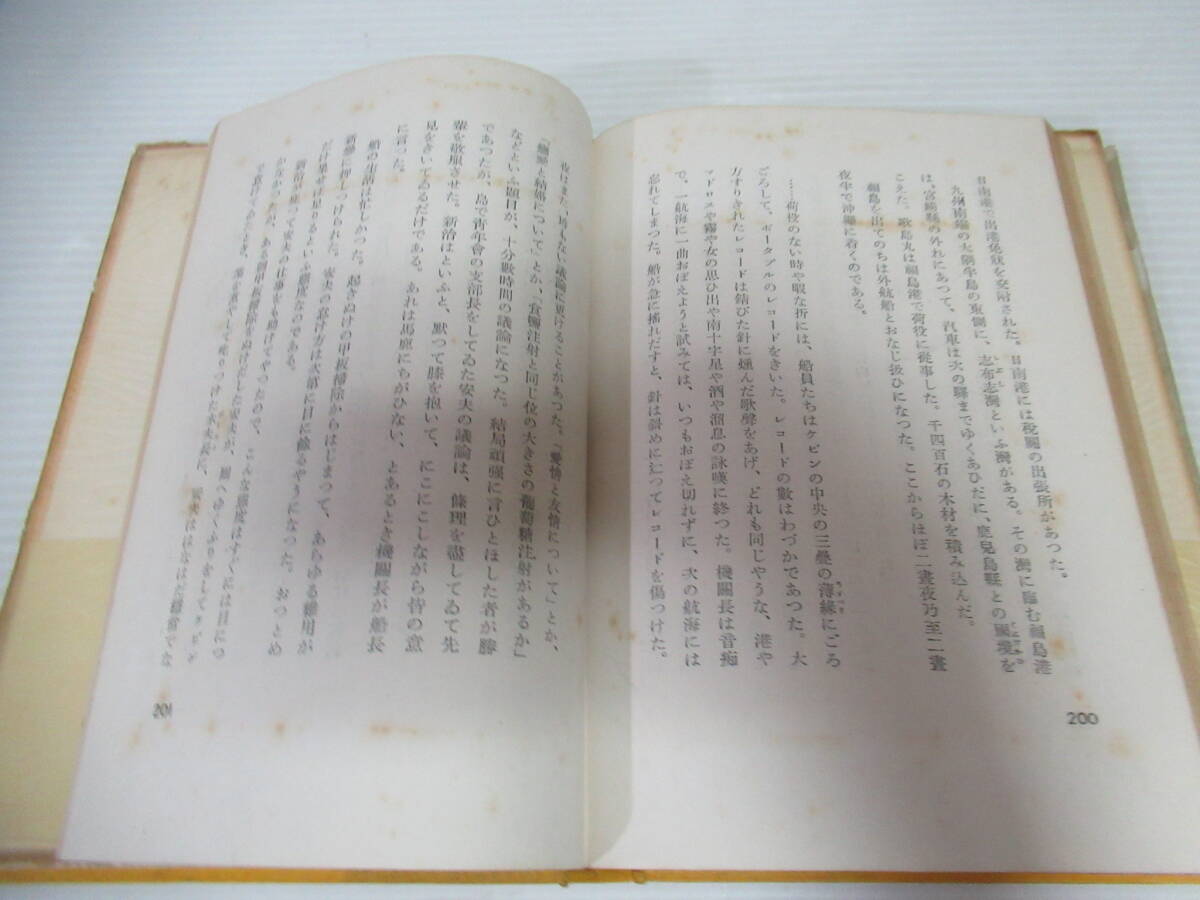 日南港で出港免狀を交附された。日南港には稅關の出張所があつた。
九州南端の大隅半島の東側に、志布志灣といふ灣がある。その灣に臨む福島港
は、宮崎縣の外れにあつて、汽車は次の驛までゆくあひだに、鹿兒島縣との國境を
こえた。歌島丸は福島港で荷役に從事した。千四百石の木材を積み込んだ。
福島を出てのちは外航船とおなじ扱ひになつた。ここからほぼ二晝夜乃至二晝
夜半で沖繩に着くのである。
……荷役のない時や暇な折には、船員たちはケビンの中央の三疊の薄緣にごろ
ごろして、ポータブルのレコードをきいた。レコードの數はわづかであつた。大
方すりきれたレコードは錆びた針に燻んだ歌聲をあげ、どれも同じやうな、港や
マドロスや霧や女の思ひ出や南十字星や酒や溜息の詠嘆に終つた。機關長は音痴
で、一航海に一曲おぼえようと試みては、いつもおぼえ切れずに、次の航海には
忘れてしまつた。船が急に搖れだすと、針は斜めに辷つてレコードを傷つけた。
200
夜もまた、埒もない議論に更けることがあつた。「愛情と友情について」とか、
「戀愛と結婚について」とか、「食鹽注射と同じ位の大きさの葡萄糖注射があるか」
などといふ題目が、十分數時間の議論になつた。結局頑强に言ひとほした者が勝
であつたが、島で靑年會の支部長をしてゐた安夫の議論は、條理を盡してゐて先
輩を敬服させた。新治といふと、默つて膝を抱いて、にこにこしながら皆の意
見をきいてゐるだけである。あれは馬鹿にちがひない、とあるとき機關長が船長
に言つた。
船の生活は忙しかつた。起きぬけの甲板掃除からはじまつて、あらゆる雜用が
新參に押しつけられた。安夫の怠け方は次第に目に餘るやうになつた。おつとめ
だけ果せば足りるといふ態度なのである。
新治が庇つて安夫の仕事をも助けてやつたので、こんな態度はすぐには目につ
かなかつたが、ある朝甲板掃除をぬけだした安夫が、厠へゆくふりをしてケビン
201